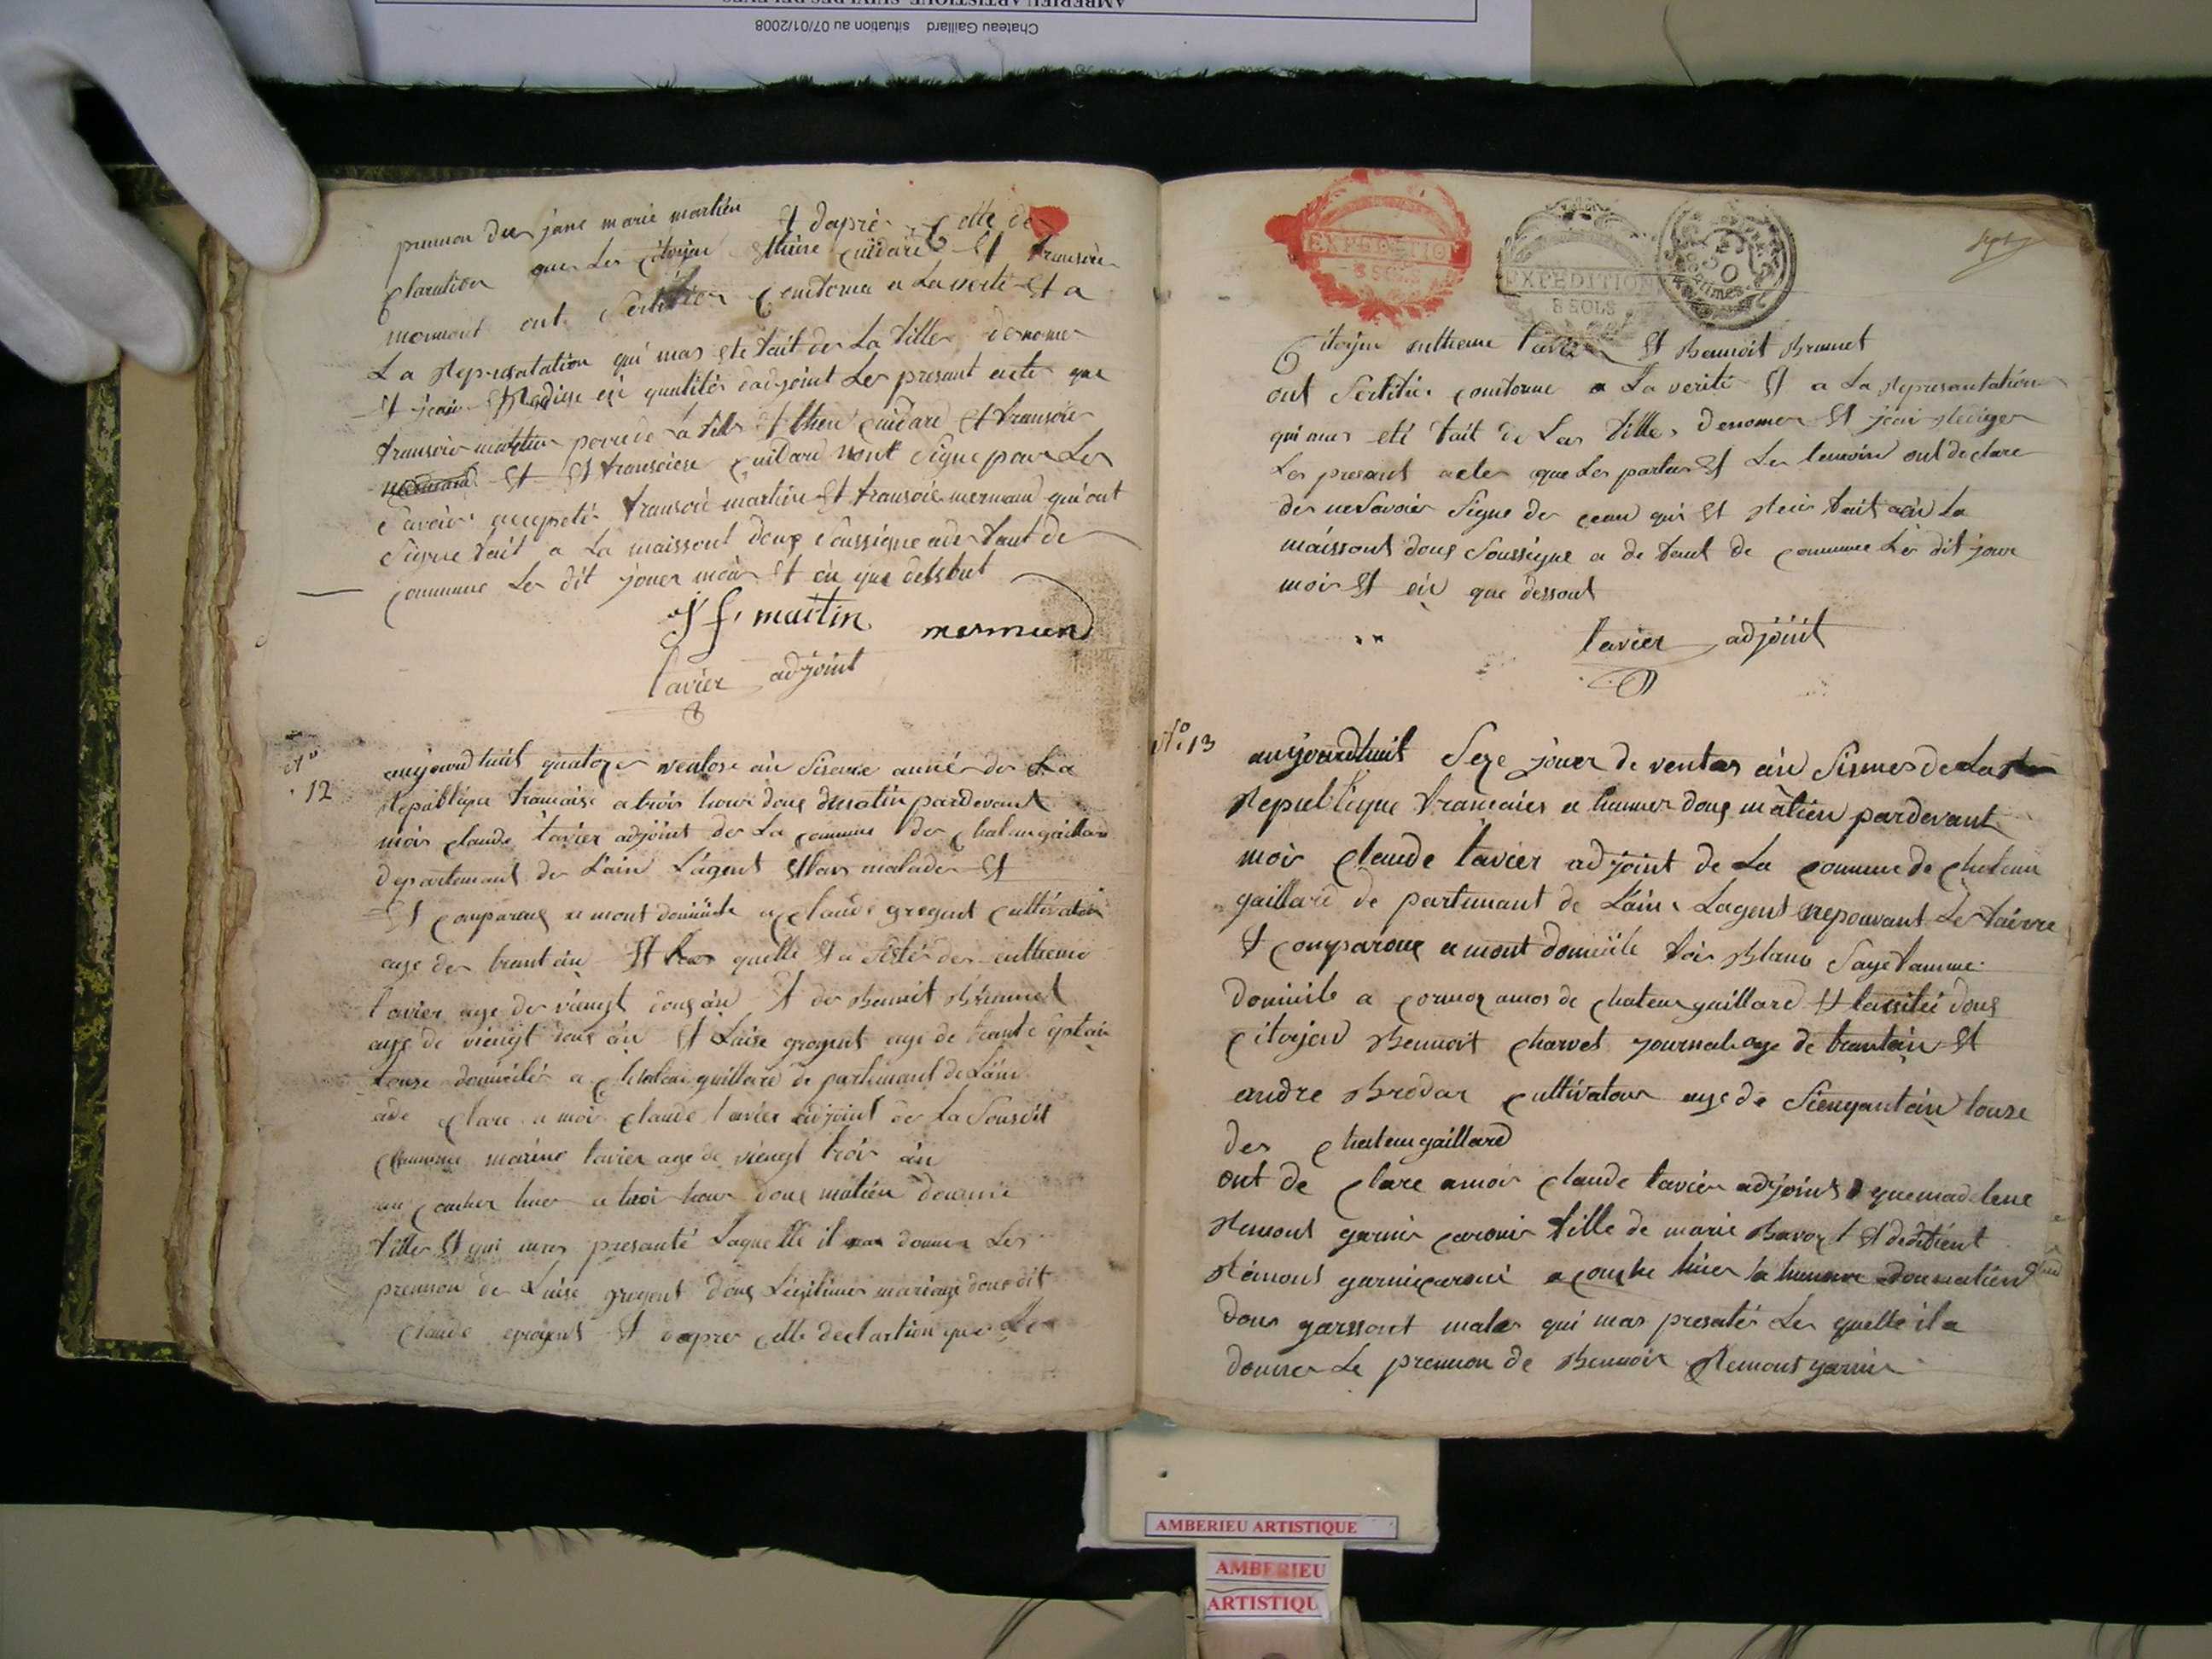 Chateau Gaillard situation au 07/01/2008
AMBERIEU ARTISTIQUE SUIVI DES RELEVES
prennon der jane marie martien Et daprè cette de
claration que Les citoyen Ettiene cuidard Et fransoies
mermant ont Sertifier conforme a La verité Et a
La Represatation qui mas ete fait der La fille denomer
Et jeai Redige en qualités dadjoint Ler presant acte que
fransoie martin perre de la fille Etthiene cuidard et fransoies
Et Et fransoiese cuidard nont Signe pour Les
Savoir accepté fransoie martin Et fransoie mermand qui ont
Signe fait a La maissont dous Soussigne ader faut de
commune Ler dit jouer mois Et ein que dessut
J f. martin mermand
favier adjoint
N°
12
aujourdhuit quatorze ventose ein Siseme anné der La
Republique francaise a trois heur dous dumatin pardevant
moir claude favier adjoint der La commune der chateaugaillard
departemant der Lain Lagent Ettans malader Et
Et comparus a mont domicile claude grogent cultivateur
age der trant ein Et quelle Et a sisté der entheme
favier age der viengt dous ein Et der Bennoit Brunnet
age de viengt dous ein Et Luise grogent age de trante Septein
touse domicilié a Chateau gaillard de partemant de Lain
ade clare a moir claude favier adjoint der La Sousdit
commune marine favier age de viengt trois ein
au coucher hier a troi heur dous matien dounne
fille Et qui mas presanté Laquelle il donner Ler
prennon der Luise grogent dous Legitimer mariage dous dit
claude grogent Et dapres cette declartion que Le
EXPEDITION
8 SOLS
EXPEDITION
8 SOLS
Sept
Citoyen entheme favier Et Bennoit Brunnet
ont Sertifie conforme a La verité Et a La Represantation
qui mas eté fait de Las fille denomer Et jeai Rediger
Les presant acter que Les parties Et Les temoin ont declare
der ne Savoir Signe der ceau qui Et Reir fait ein La
maissont dous Soussigne a de faut de commune Ler dit jour
mois Et ein que dessout
favier adjoint
N° 13
aujourdhuit Seze jouer de ventos ein Sismes de La
Republique francaies a hunner dous matien pardevant
moir claude favier adjoint de La commune de chateau
gaillard de partemant de Lain Lagent nepouvant Ler fairre
Et comparous a mont domicile Blanc Sage famme
domicile a cormoz de chateau gaillard Et lassité dous
citoyen Bennoit charvet journali age de trantein Et
andre Brevar cultivatour age de Sienquantein touse
der chateau gaillard
ont de clare a moir claude favier adjoint que madelene
Remont garnir caronir fille de marie Bavoz Et de
Remont garnicaroni a couche hier a hunner dou matien
doun garssont maler qui mas presater Ler quelle il a
donner Le prennon de Bennoir Remont garnir
AMBERIEU ARTISTIQUE
AMBERIEU
ARTISTIQU